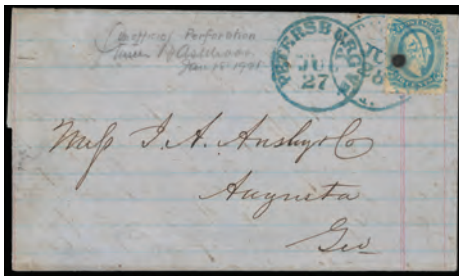 Unofficial Perforation
Jan 15-1901
PETERSBURG
JUL
27
Mess J. A. Ansley & Co
Augusta
Geo